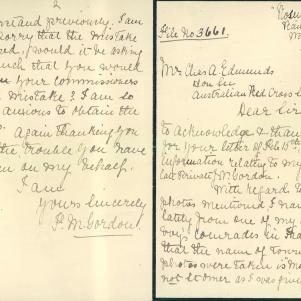 2
me and previously. I am
sorry that the mistake
ed, would it be asking
much that you would
your commissioners
mistake? I am so
anxious to obtain the
Again thanking you
the trouble you have
en on my behalf.
I am
Yours sincerely
P. M. Gordon
File No 3661.
Mr Chas A. Edmunds
Hon Sec
Australian Red Cross
Dear Sir
to acknowledge & than
for your letter of Feb 15th,
Information relative to my
late Private J. M. Gordon.
With regard to
photos mentioned I ha
lately from one of my
boys comrades in
that the name of town
photos were taken is "Me
not St omer as I was give